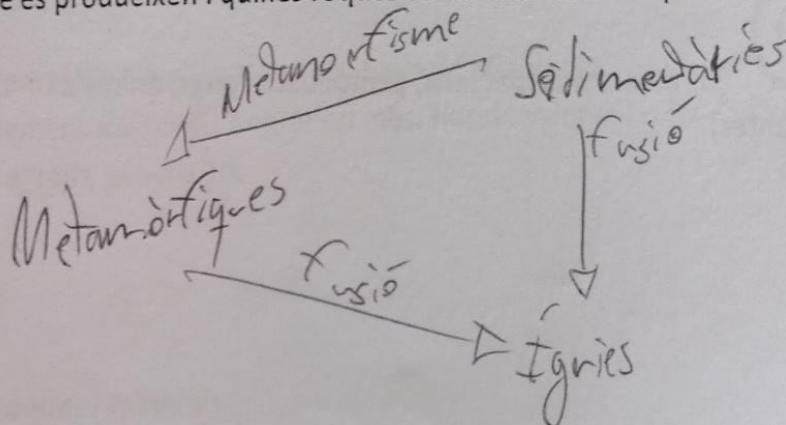 es produeixen i quines
Metamorfisme
Sedimentàries
fusió
Metamòrfiques
Fusió
Ígnies